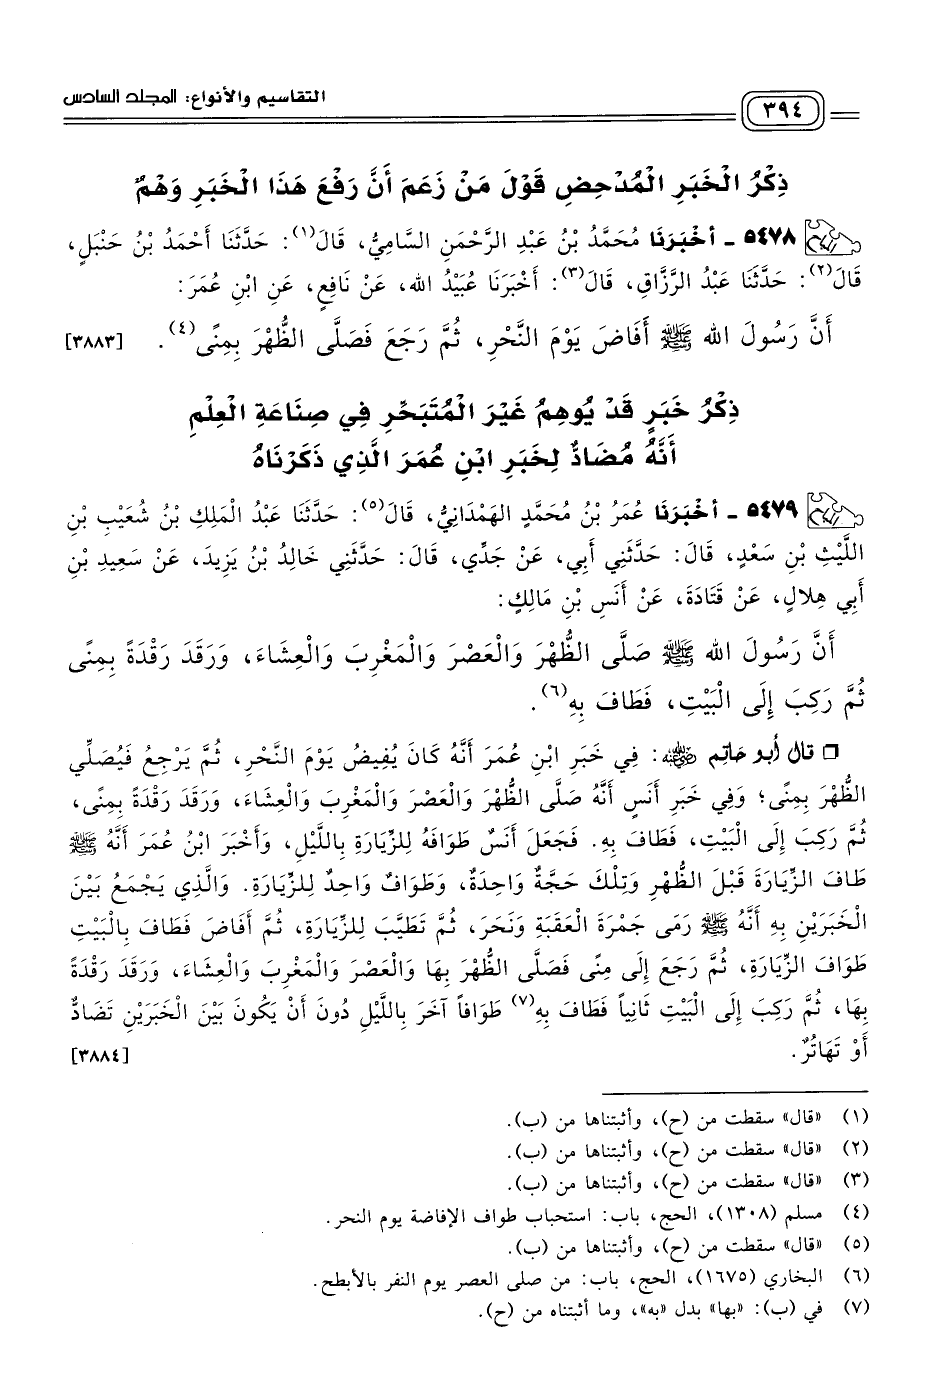 التقاسيم والأنواع: المجلد السادس
٣٩٤
ذِكْرُ الْخَبَرِ الْمُدْحِضِ قَوْلَ مَنْ زَعَمَ أَنَّ رَفْعَ هَذَا الْخَبَرِ وَهْمٌ
٥٤٧٨ - أخْبَرَنَا مُحَمَّدُ بْنُ عَبْدِ الرَّحْمَنِ السَّامِيُّ، قَالَ(١): حَدَّثَنَا أَحْمَدُ بْنُ حَنْبَلٍ،
قَالَ(٢): حَدَّثَنَا عَبْدُ الرَّزَّاقِ، قَالَ(٣): أَخْبَرَنَا عُبَيْدُ الله، عَنْ نَافِعٍ، عَنِ ابْنِ عُمَرَ:
أَنَّ رَسُولَ الله ﷺ أَفَاضَ يَوْمَ النَّحْرِ، ثُمَّ رَجَعَ فَصَلَّى الظُّهْرَ بِمِنًى(٤). [٣٨٨٣]
ذِكْرُ خَبَرٍ قَدْ يُوهِمُ غَيْرَ الْمُتَبَحِّرِ فِي صِنَاعَةِ الْعِلْمِ
أَنَّهُ مُضَادٌّ لِخَبَرِ ابْنِ عُمَرَ الَّذِي ذَكَرْنَاهُ
٥٤٧٩ - أخْبَرَنَا عُمَرُ بْنُ مُحَمَّدٍ الهَمْدَانِيُّ، قَالَ(٥): حَدَّثَنَا عَبْدُ الْمَلِكِ بْنُ شُعَيْبِ بْنِ
اللَّيْثِ بْنِ سَعْدٍ، قَالَ: حَدَّثَنِي أَبِي، عَنْ جَدِّي، قَالَ: حَدَّثَنِي خَالِدُ بْنُ يَزِيدَ، عَنْ سَعِيدِ بْنِ
أَبِي هِلالٍ، عَنْ قَتَادَةَ، عَنْ أَنَسِ بْنِ مَالِكٍ:
أَنَّ رَسُولَ الله ﷺ صَلَّى الظُّهْرَ وَالْعَصْرَ وَالْمَغْرِبَ وَالْعِشَاءَ، وَرَقَدَ رَقْدَةً بِمِنًى
ثُمَّ رَكِبَ إِلَى الْبَيْتِ، فَطَافَ بِهِ(٦).
❒ قال أبو حاتم ﵁: فِي خَبَرِ ابْنِ عُمَرَ أَنَّهُ كَانَ يُفِيضُ يَوْمَ النَّحْرِ، ثُمَّ يَرْجِعُ فَيُصَلِّي
الظُّهْرَ بِمِنًى؛ وَفِي خَبَرِ أَنَسٍ أَنَّهُ صَلَّى الظُّهْرَ وَالْعَصْرَ وَالْمَغْرِبَ وَالْعِشَاءَ، وَرَقَدَ رَقْدَةً بِمِنًى،
ثُمَّ رَكِبَ إِلَى الْبَيْتِ، فَطَافَ بِهِ. فَجَعَلَ أَنَسٌ طَوَافَهُ لِلزِّيَارَةِ بِاللَّيْلِ، وَأَخْبَرَ ابْنُ عُمَرَ أَنَّهُ ﷺ
طَافَ الزِّيَارَةَ قَبْلَ الظُّهْرِ وَتِلْكَ حَجَّةٌ وَاحِدَةٌ، وَطَوَافٌ وَاحِدٌ لِلزِّيَارَةِ. وَالَّذِي يَجْمَعُ بَيْنَ
الْخَبَرَيْنِ بِهِ أَنَّهُ ﷺ رَمَى جَمْرَةَ الْعَقَبَةِ وَنَحَرَ، ثُمَّ تَطَيَّبَ لِلزِّيَارَةِ، ثُمَّ أَفَاضَ فَطَافَ بِالْبَيْتِ
طَوَافَ الزِّيَارَةِ، ثُمَّ رَجَعَ إِلَى مِنًى فَصَلَّى الظُّهْرَ بِهَا وَالْعَصْرَ وَالْمَغْرِبَ وَالْعِشَاءَ، وَرَقَدَ رَقْدَةً
بِهَا، ثُمَّ رَكِبَ إِلَى الْبَيْتِ ثَانِياً فَطَافَ بِهِ(٧) طَوَافاً آخَرَ بِاللَّيْلِ دُونَ أَنْ يَكُونَ بَيْنَ الْخَبَرَيْنِ تَضَادٌّ
أَوْ تَهَاتُرٌ. [٣٨٨٤]
(١) «قال» سقطت من (ح)، وأثبتناها من (ب).
(٢) «قال» سقطت من (ح)، وأثبتناها من (ب).
(٣) «قال» سقطت من (ح)، وأثبتناها من (ب).
(٤) مسلم (١٣٠٨)، الحج، باب: استحباب طواف الإفاضة يوم النحر.
(٥) «قال» سقطت من (ح)، وأثبتناها من (ب).
(٦) البخاري (١٦٧٥)، الحج، باب: من صلى العصر يوم النفر بالأبطح.
(٧) في (ب): «بها» بدل «به»، وما أثبتناه من (ح).